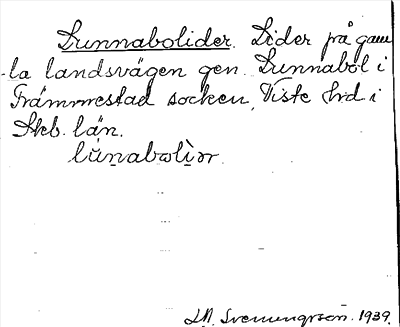 Lunnabolider. Lider på gam
la landsvägen gen. Lunnabol i
Främmestad socken, Viste hrd i
Skb. län.
lu̇nabolìər
Svenungsson. 1939.